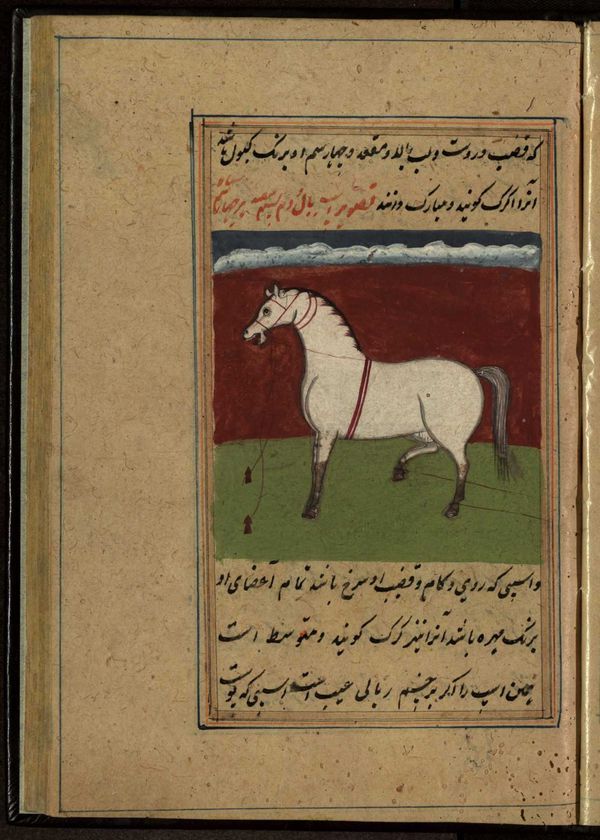 که قضیب و روت و لب بالا و مقعد و چهار سم او برنک کبول باشد
آنرا کرک کویند و مبارک دانند تصویر اسب یال و دم سیاه
و اسپی که روی و کام و قضیب او سرخ باشد تمام اعضای او
برنک میره باشد آنرا نیز کرک کویند و متوسط است
همین اسپ را اکر بر چشم ربالی عیب است اسپی که پوست